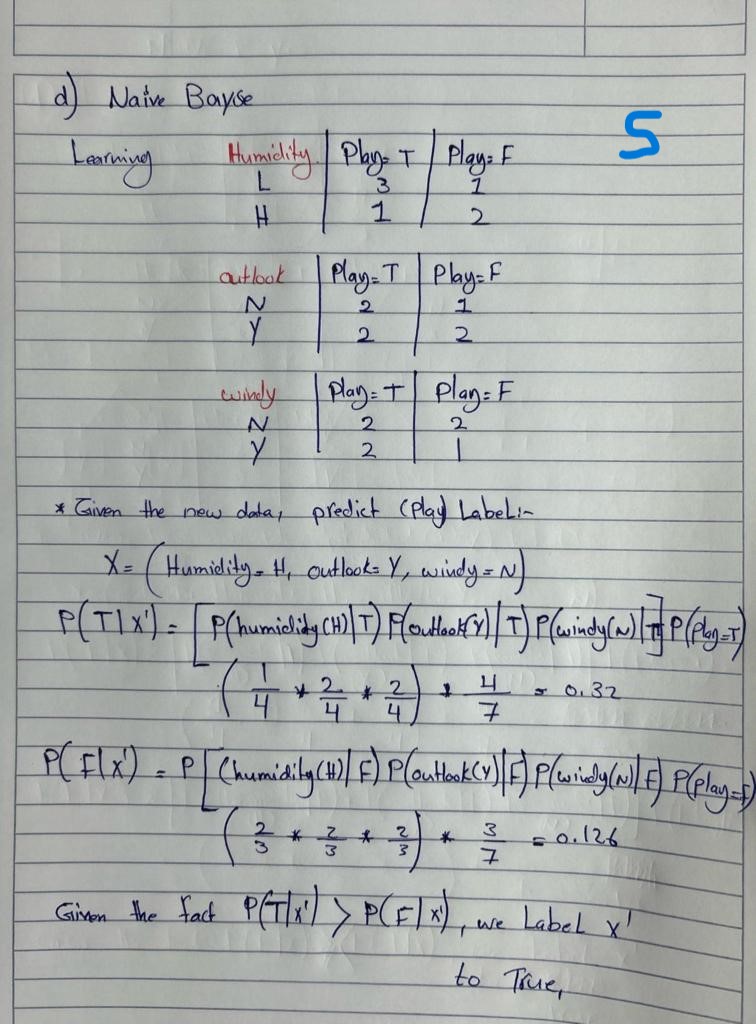 d) Naive Bayse
S
Learning Humidity Play=T Play=F
L 3 1
H 1 2
outlook Play=T Play=F
N 2 1
Y 2 2
windy Play=T Play=F
N 2 2
Y 2 1
* Given the new data, predict (Play) Label:-
X = (Humidity=H, outlook=Y, windy=N)
P(T|x') = [P(humidity(H)|T) P(outlook(Y)|T) P(windy(N)|T] P(Play=T)
(1/4 * 2/4 * 2/4) * 4/7 = 0.32
P(F|x') = P[(humidity(H)|F) P(outlook(Y)|F) P(windy(N)|F) P(Play=F)
(2/3 * 2/3 * 2/3) * 3/7 = 0.126
Given the fact P(T|x') > P(F|x'), we Label x'
to True,